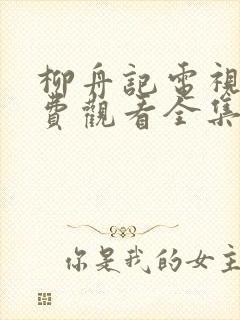 柳舟記電視
費觀看全集
你是我的女主